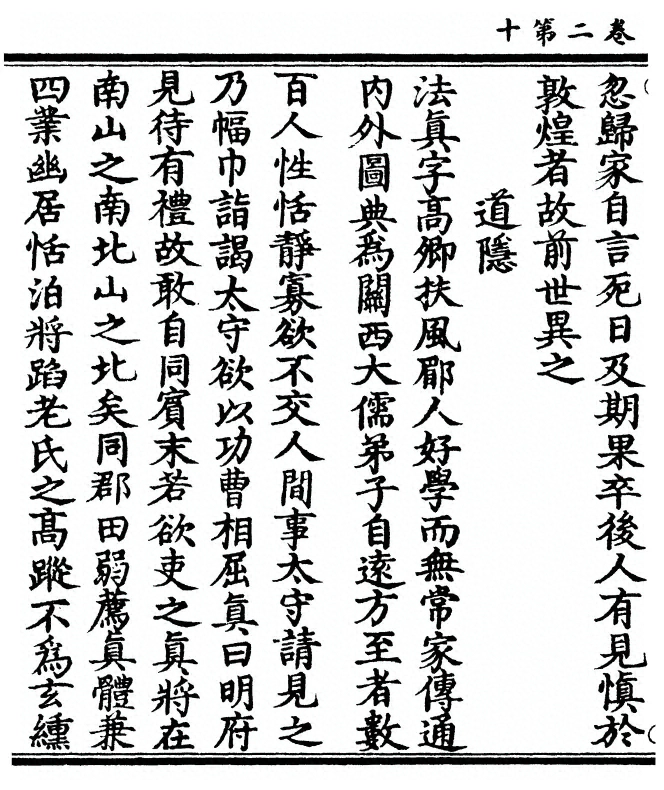 卷二第十
忽歸家自言死日及期果卒後人有見慎於
敦煌者故前世異之
道隱
法眞字高卿扶風郿人好學而無常家傳通
內外圖典爲關西大儒弟子自遠方至者數
百人性恬靜寡欲不交人間事太守請見之
乃幅巾詣謁太守欲以功曹相屈眞曰明府
見待有禮故敢自同賓末若欲吏之眞將在
南山之南北山之北矣同郡田弱薦眞體兼
四業幽居恬泊將蹈老氏之高蹤不爲玄纁